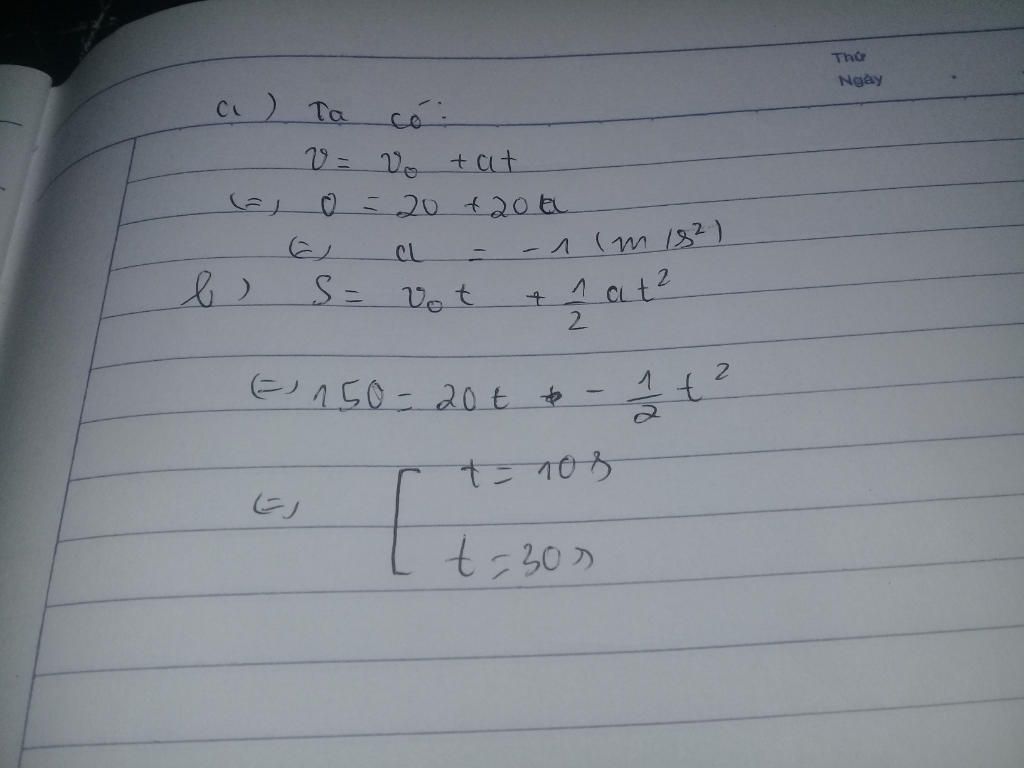 Thứ
Ngày
a) Ta có:
v = v₀ + at
(=) 0 = 20 + 20a
(=) a = -1 (m/s²)
b) S = v₀t + 1/2 at²
(=) 150 = 20t - 1/2 t²
(=) [ t = 10s
t = 30s